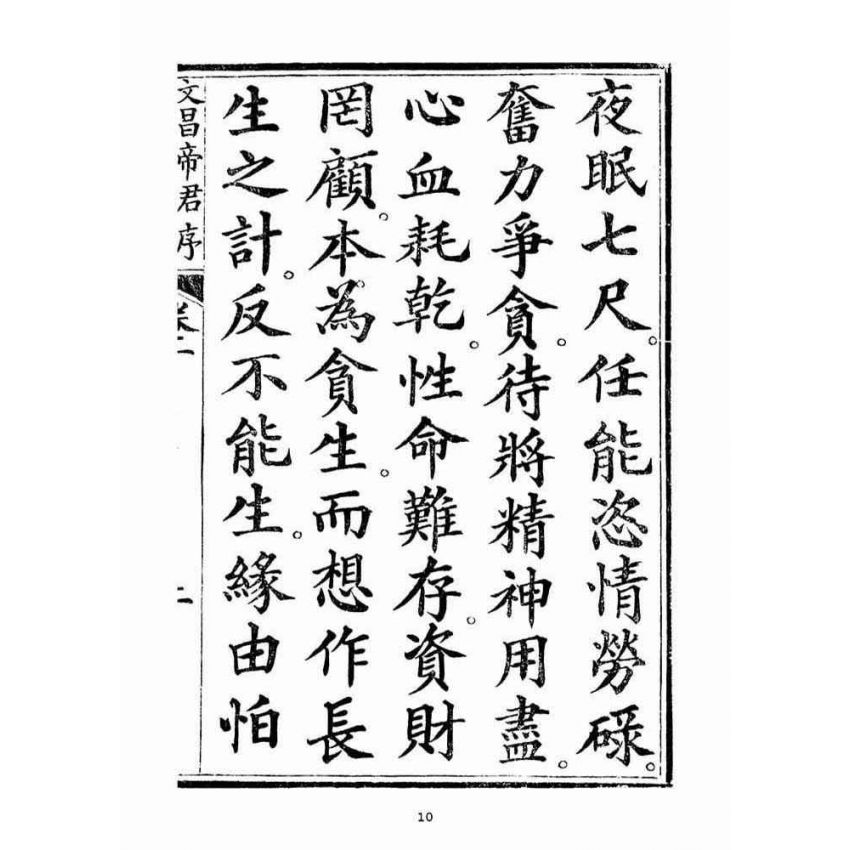 夜眠七尺。任能恣情勞碌。
奮力爭貪。待將精神用盡。
心血耗乾。性命難存。資財
罔顧。本為貪生。而想作長
生之計。反不能生。緣由怕
文昌帝君序
10